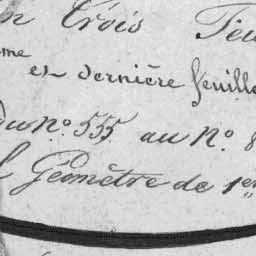 en Trois Feu
me
et dernière feuille
Du N.° 555 au N.° 8
l Géomètre de 1er